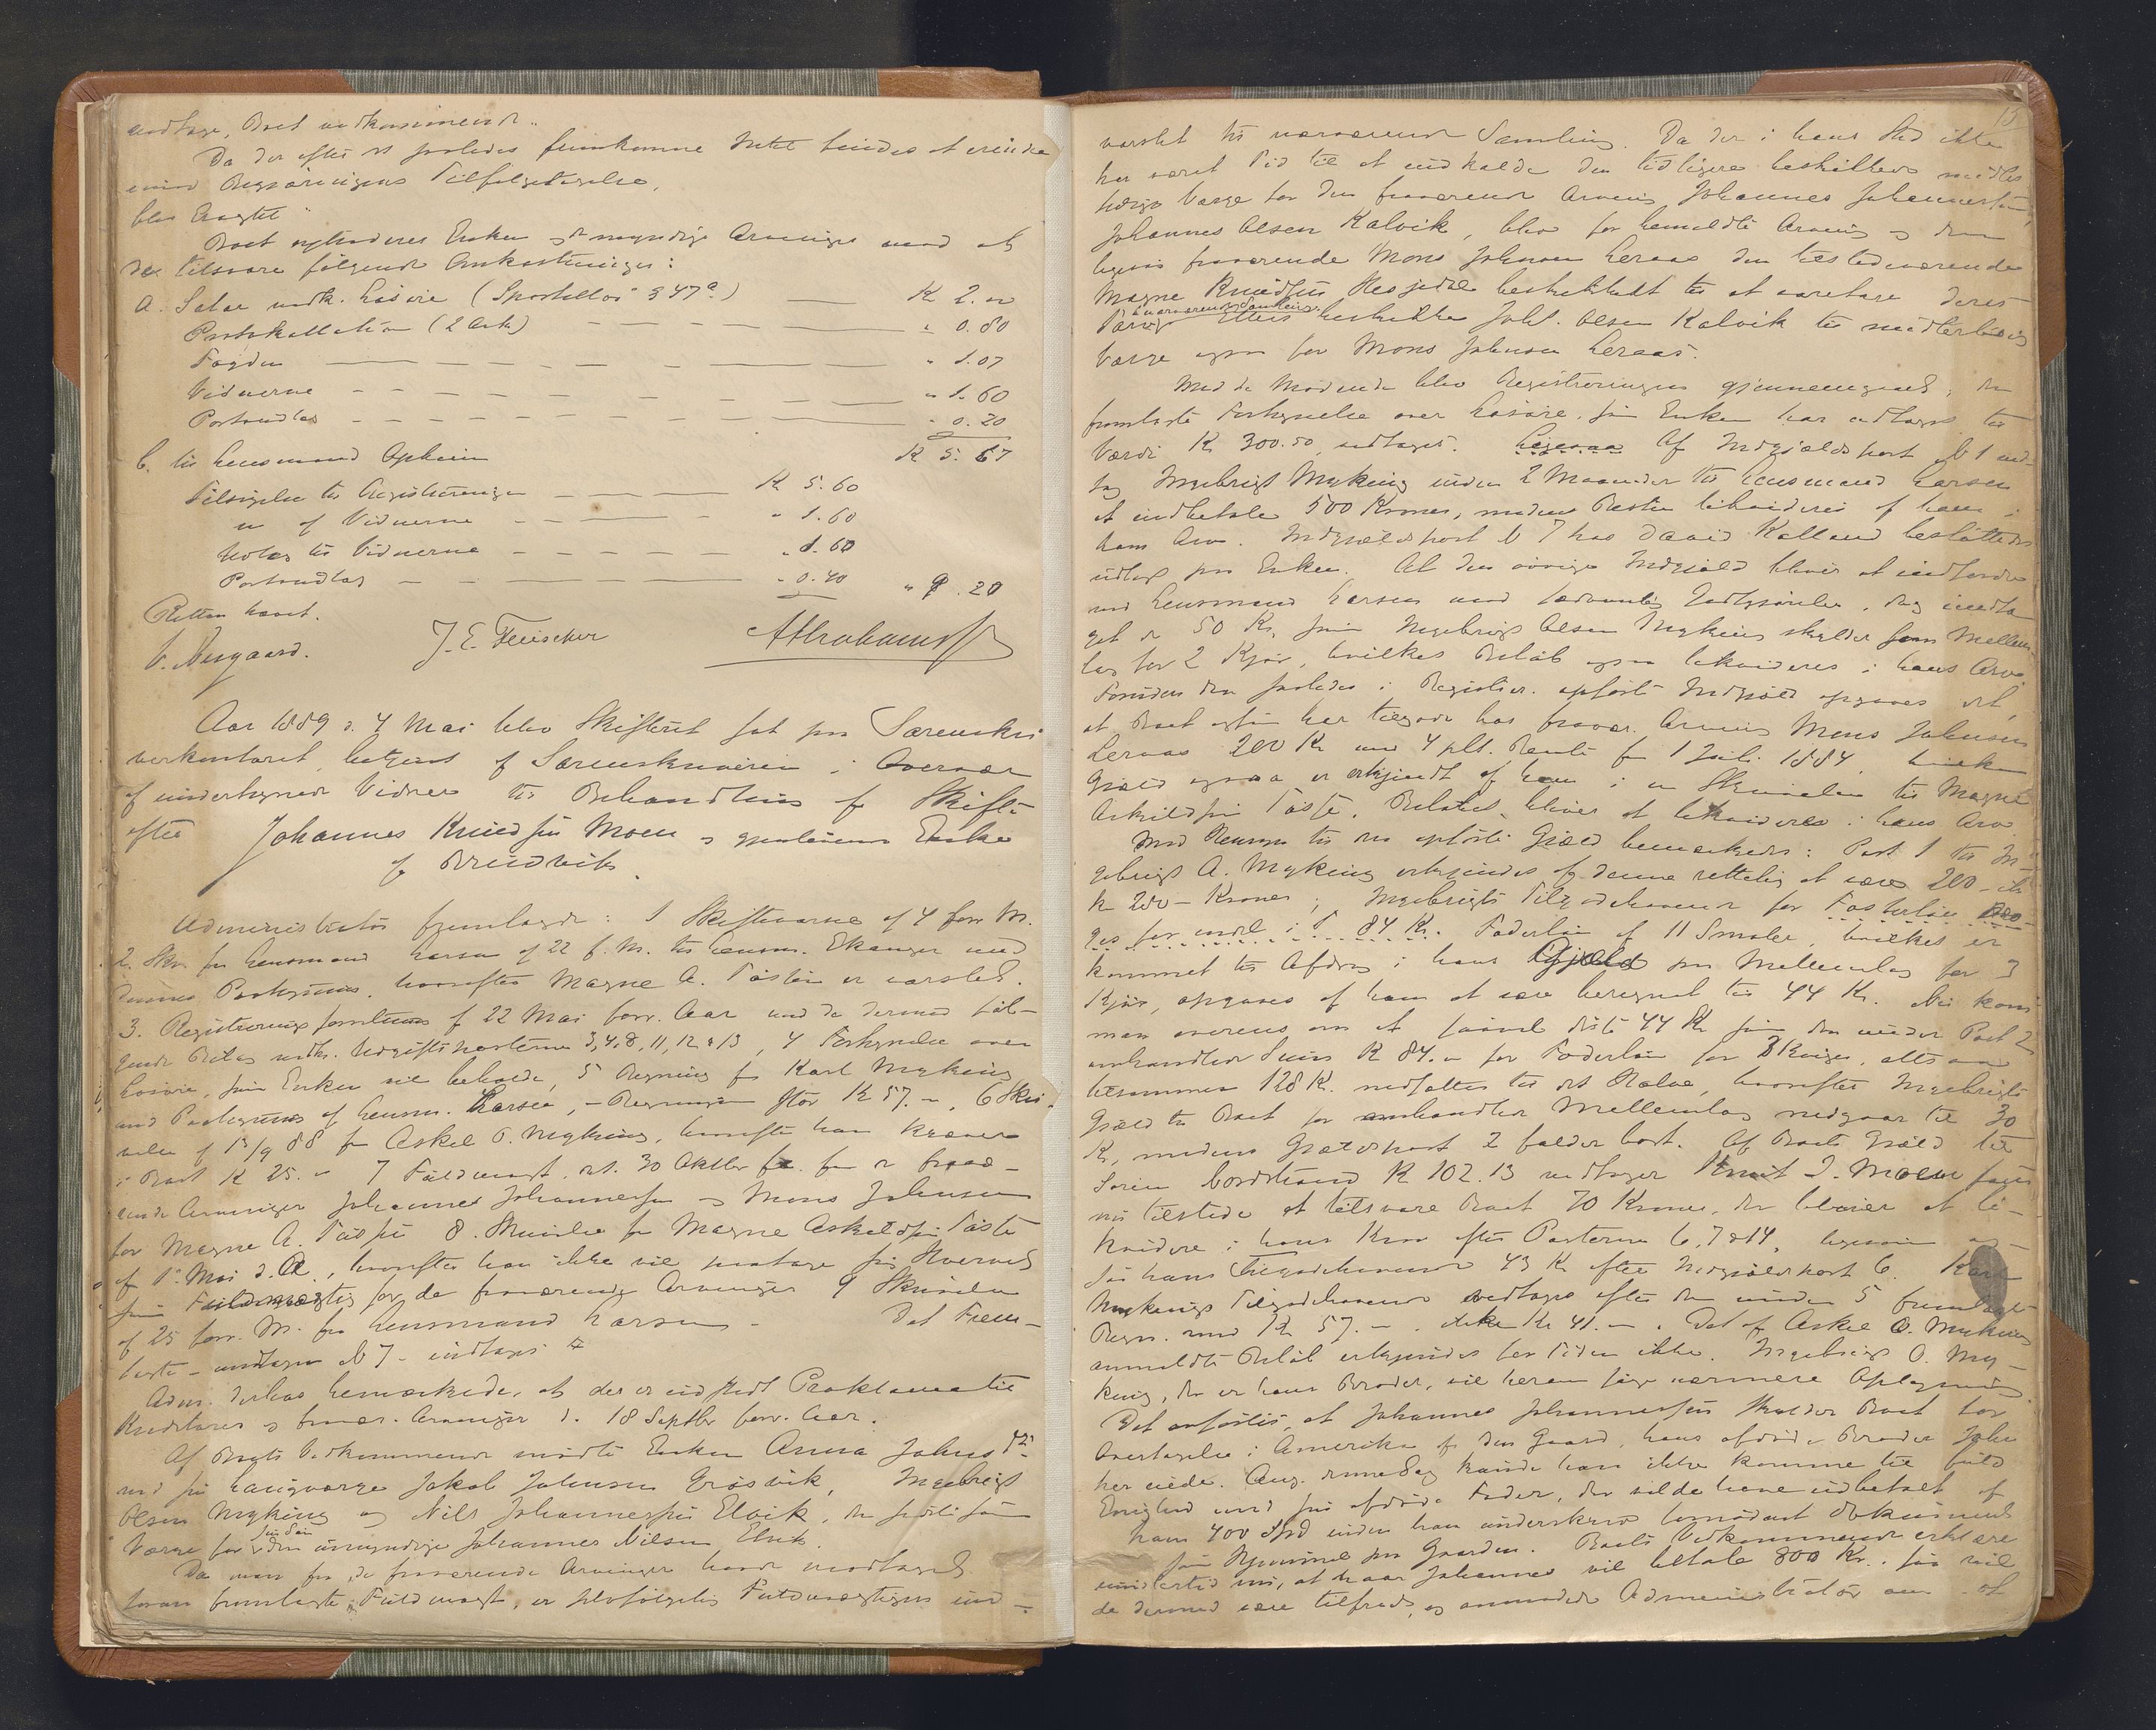 Da der efter det saaledes fremkomne Intet findes at erindre
imod Registreringens Tilfølgetagelse,
blev Eragtet
Boet extraderes Enken og de myndige Arvinger mod at
de tilsvare følgende Omkostninger:
a. Salær vedk. Løsøre (Sportellov § 47a) K 2.00
Protokollation (2 Ark) " 0.80
Fogden " 1.07
Vidnerne " 1.60
Portoudlæg " 0.20
K 5.67
b. til Lensmand
Tilsigelse til Registreringen K 5.60
" af Vidnerne " 1.60
til Vidnerne " 1.60
Portoudlæg " 0.40 " 9.20
Retten hævet.
J. E. Fleischer
Aar 1889 d. 4 Mai blev Skifteret sat paa Sorenskri
verkontoret, betjent af Sorenskriveren i Overvær
af underskrevne Vidner til Behandling af Skifte
efter Johannes Knudsøn Moen og gjenlevende Enke
af Bruvik
Administrator fremlagde: 1 Skiftevarsel af 4 forr. M.
2. Skr. fra Lensmand Larsen af 22 f. M. til Lensm. Ekanger med
dennes Paategning, hvorefter Magne A. Tøsten er varslet.
3. Registreringsforretning af 22 Mai forr. Aar med de dermed føl-
gende Bilag vedk. Udgiftsposterne 3,4,8,11,12 & 13, 4 Fortegnelse over
Løsøre, som Enken vil beholde, 5 Regning fra Karl Myking
med Paategning af Lensm. Larsen, - Regningen stor K 57.-, 6 Skri-
velse af 13/9 88 fra Askel O. Myking, hvorefter han kræver
i Boet K 25.- 7 Fuldmagt, dat. 30 Oktbr fra de fravæ-
rende Arvinger Johannes Johannessøn og Mons Johnsen
for Magne A. 8. Skrivelse fra Magne Askeldsøn Tøste
af 1. Mai d. A., hvorefter han ikke vil modtage sit Hverv
som Fuldmægtig for de fraværende Arvinger 9 Skrivelse
af 25 forr. M. fra Lensmand Larsen - Det Frem-
lagte - undtagen No 7 - indtages
Adm. derhos bemærkede, at der er udstedt Proklama til
Kreditorer og fravær. Arvinger d. 18 Septbr forr. Aar.
Af Boets Vedkommende mødte Enken Anna Johnsdtr
med sin Laugværge Jakob Johnsen Grøsvik, Ingebrigt
Olsen Myking og Nils Johannessøn Elvik, den sidste som
Værge for sin Søn den umyndige Johannes Nilsen Elvik.
Da man fra de fraværende Arvinger havde modtaget
foran fremlagte Fuldmagt, er selvfølgelig Fuldmægtigen ind-
15
varslet til nærværende Samling. Da der i hans Sted ikke
har været Tid til at indkalde den tidligere beskikkede midler
tidige Værge for den fraværende Arving Johannes Johannessøn,
Johannes Olsen Kalvik, blev for bemeldte Arving og den
ligeledes fraværende Mons Johnsen Leraas den tilstedeværende
Magne Knudsøn Hesjedal beskikket til at varetage deres
Tarv i nærværende Samling. Ellers beskikkes Johs. Olsen Kalvik til midlertidig
Værge ogsaa for Mons Johnsen Leraas.
Med de Mødende blev Registreringen gjennemgaaet; den
fremlagte Fortegnelse over Løsøre som Enken har udtaget til
Værdi K 300.50, indtages. Ligesaa Af Indgjældspost No 1 ved-
tog Ingebrigt Myking inden 2 Maaneder til Lensmand Larsen
at indbetale 500 Kroner, medens Resten likvideres af ham i
hans Arv. Indgjældspost No 7 hos David Kalland besluttedes
udlagt paa Enken. Al den øvrige Indgjæld bliver at indfordre
ved Lensmand Larsen med sædvanlig
get de 50 Kr, som Ingebrigt Olsen Myking skylder som Mellem-
lag for 2 Kjør, hvilket Beløb ogsaa likvideres i hans Arv.
Foruden den saaledes i Registrer. opførte Indgjæld opgaves det,
at Boet ogsaa har tilgode hos fravær. Arving Mons Johnsen
Leraas 200 Kr med 4 pCt. Rente fra 1 Juli 1884, hvilken
Gjæld ogsaa er erkjendt af ham i en Skrivelse til Magne
Askildsøn Tøste. Beløbet bliver at likvideres i hans Arv.
Med Hensyn til den opførte Gjæld bemærkedes: Post 1 til In-
gebrigt O. Myking erkjendes af denne rettelig at være 200 - ikke
K 250 - Kroner; Ingebrigts Tilgodehavende for Foderløn
84 Kr. Foderløn af 11 Smale, hvilket er
kommet til Afdrag i hans Gjæld paa Mellemlag for 3
Kjør, opgaves af ham at være beregnet til 44 Kr. Nu kom
man overens om at saavel disse 44 Kr som den under Post 2
omhandlede Sum K 84.- for Foderløn for 3 Kviger, altsaa
tilsammen 128 K. nedsættes til det Halve, hvorefter Ingebrigts
Gjæld til Boet for omhandlede Mellemlag nedgaar til 30
K, medens Gjældspost 2 falder bort. Af Boets Gjæld til
Søren K 102.13 vedtager Knut J. Moen som
nu tilstede at tilsvare Boet 70 Kroner, der bliver at li-
kvidere i hans Krav efter Posterne 6, 7 & 14, ligesom og-
saa hans Tilgodehavende 43 K efter Indgjældspost 6. Karl
Mykings Tilgodehavende vedtages efter den under 5 fremlagte
Regn. med K 57.-, ikke Kr 41.-. Det af Askel O. Myking
anmeldte Beløb erkjendes for Tiden ikke. Ingebrigt O. My-
king, der er hans Broder, vil herom søge nærmere Oplysning.
Det anførtes, at Johannes Johannessøn skylder Boet for
Overtagelse i Amerika af den Gaard, hans afdøde Broder John
her eiede. Ang. denne Sag kunde han ikke komme til fuld
Enighed med sin afdøde Fader, der vilde have udbetalt af
ham 400 Spd inden han underskrev Dokument
som Hjemmel paa Gaarden. Boets Vedkommende erklære
imidlertid nu, at naar Johannes vil betale 800 Kr., saa vil
de dermed være tilfreds, og anmodede Administrator om at